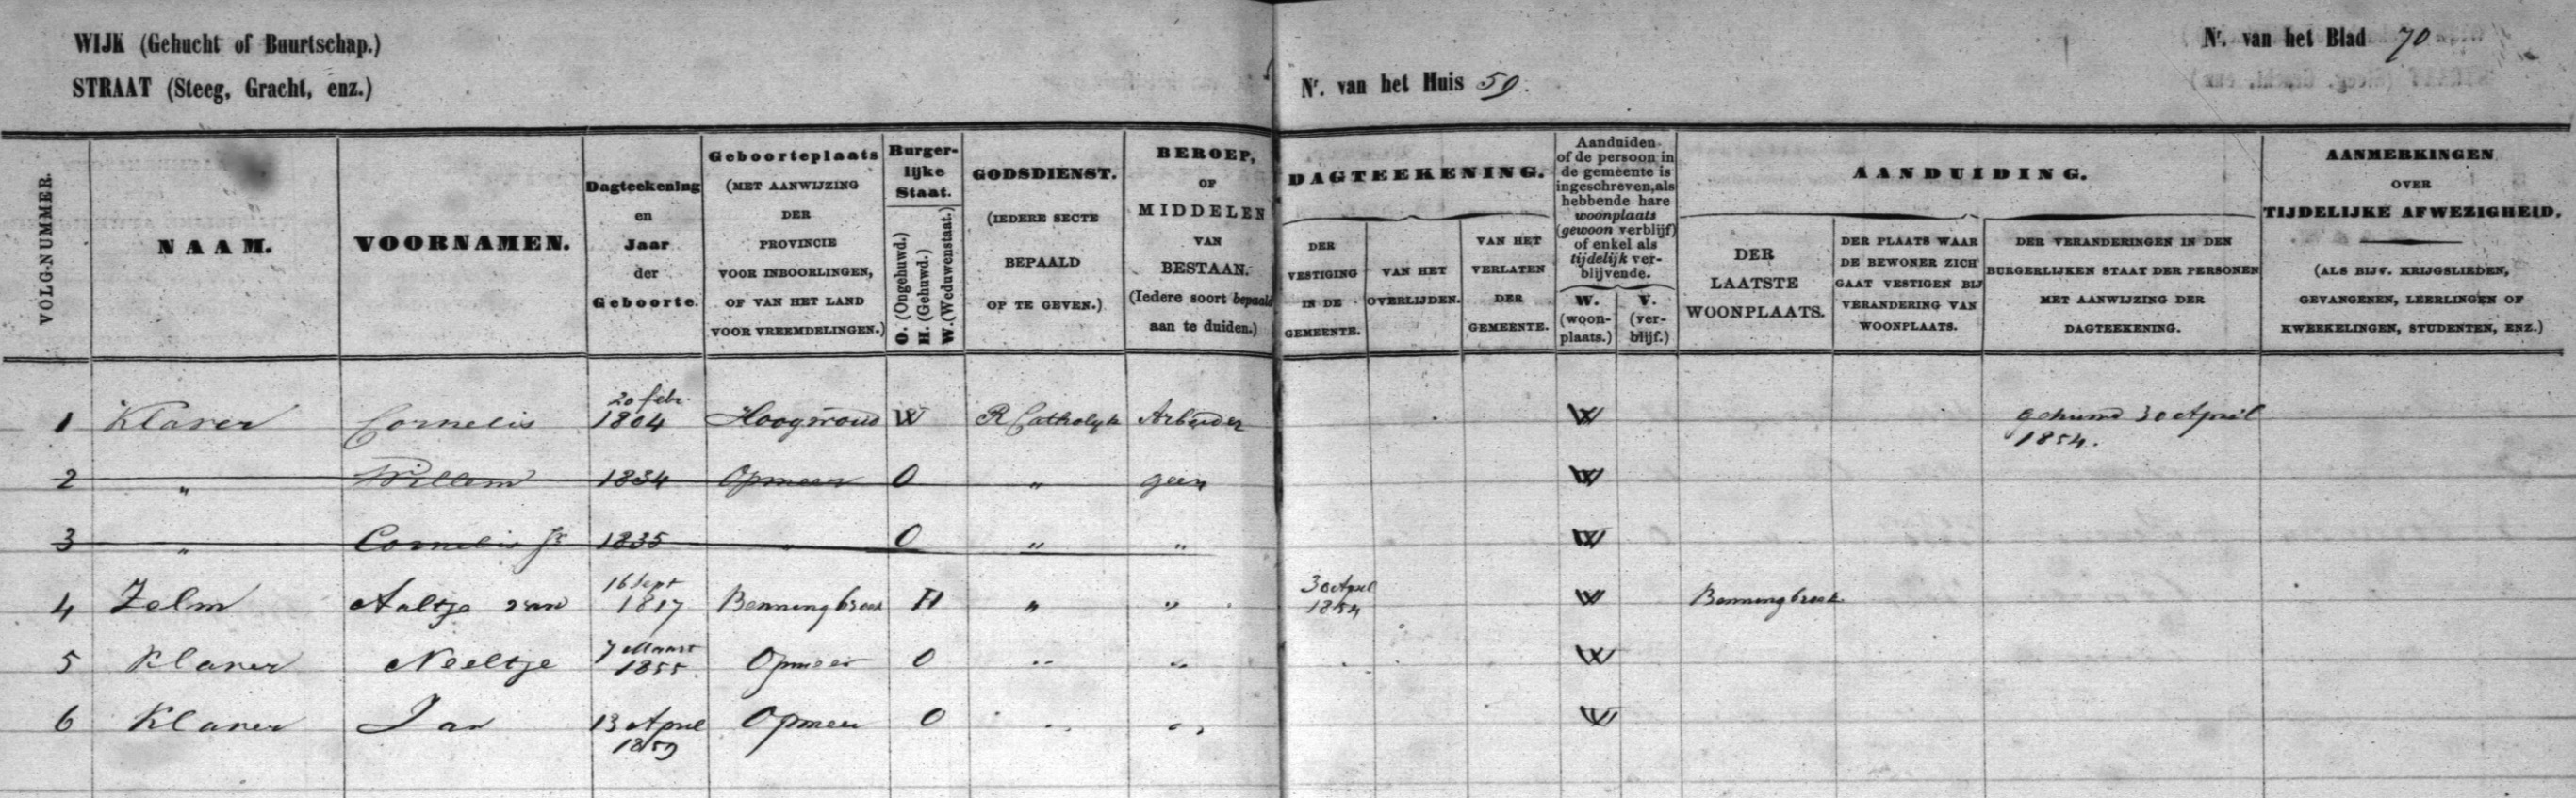 WIJK (Gehucht of Buurtschap.)
STRAAT (Steeg, Gracht, enz.)
Nr. van het Huis 59.
Nr. van het Blad 70
VOLG-NUMMER.
NAAM.
VOORNAMEN.
Dagteekening
en
Jaar
der
Geboorte.
Geboorteplaats
(MET AANWIJZING
DER
PROVINCIE
VOOR INBOORLINGEN,
OF VAN HET LAND
VOOR VREEMDELINGEN.)
Burger-
lijke
Staat.
O. (Ongehuwd.)
H. (Gehuwd.)
W. (Weduwenstaat.)
GODSDIENST.
(IEDERE SECTE
BEPAALD
OP TE GEVEN.)
BEROEP,
OF
MIDDELEN
VAN
BESTAAN.
(Iedere soort bepaald
aan te duiden.)
DAGTEEKENING.
DER
VESTIGING
IN DE
GEMEENTE.
VAN HET
OVERLIJDEN.
VAN HET
VERLATEN
DER
GEMEENTE.
Aanduiden
of de persoon in
de gemeente is
ingeschreven, als
hebbende hare
woonplaats
(gewoon verblijf)
of enkel als
tijdelijk ver-
blijvende.
W.
(woon-
plaats.)
V.
(ver-
blijf.)
AANDUIDING.
DER
LAATSTE
WOONPLAATS.
DER PLAATS WAAR
DE BEWONER ZICH
GAAT VESTIGEN BIJ
VERANDERING VAN
WOONPLAATS.
DER VERANDERINGEN IN DEN
BURGERLIJKEN STAAT DER PERSONEN
MET AANWIJZING DER
DAGTEEKENING.
AANMERKINGEN
OVER
TIJDELIJKE AFWEZIGHEID.
(ALS BIJV. KRIJGSLIEDEN,
GEVANGENEN, LEERLINGEN OF
KWEEKELINGEN, STUDENTEN, ENZ.)
1 Klaver Cornelis 20 febr. 1804 Hoogwoud W R Catholyk Arbeider W gehuwd 30 April 1854.
2 " Willem 1834 Opmeer O " geen W
3 " Cornelis Jr 1835 " O " " W
4 Zelm Aaltje van 16 Sept 1817 Benningbroek H " " 30 April 1854 W Benningbroek
5 Klaver Neeltje 7 Maart 1855. Opmeer O " " W
6 Klaver Jan 13 April 1859 Opmeer O " " W